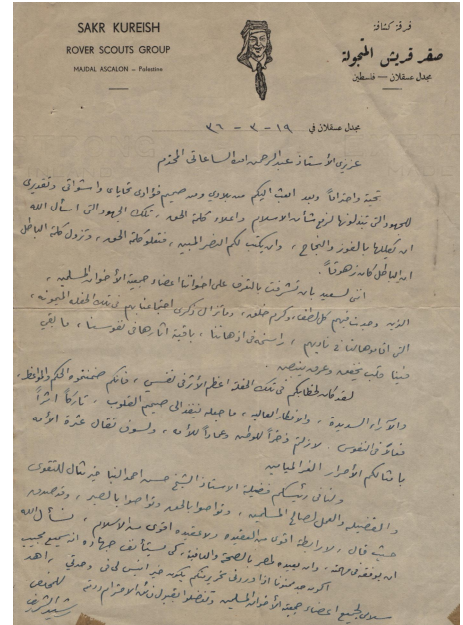 SAKR KUREISH
ROVER SCOUTS GROUP
MAJDAL ASCALON – Palestine
فرقة كشافة
صقر قريش المتجولة
مجدل عسقلان — فلسطين
مجدل عسقلان في ١٩ - ٣ - ٣٦
عزيزي الأستاذ عبد الرحمن الساعاتي المحترم
تحية واحتراماً وبعد ابعث اليكم من بلادي ومن صميم فؤادي تحاياي واشواقي وتقديري
للجهود التي تبذلونها لرفع شأن الاسلام واعلاء كلمة الحق، تلك الجهود التي اسأل الله
ان يكللها بالفوز والنجاح، وان يكتب لكم النصر المبين، فتعلو كلمة الحق، وتزول كلمة الباطل
ان الباطل كان زهوقاً.
انني لسعيد بان تشرفت بالتعرف على اخواننا اعضاء جمعية الأخوان المسلمين،
الذين وجدنا فيهم كل لطف وكرم خلق، وما تزال ذكرى اجتماعنا بهم في تلك الحفلة الميمونة،
التي اقاموها لنا في ناديهم، راسخة في اذهاننا، باقية آثارها في نفوسنا، ما بقي
فينا قلب يخفق وعرق ينبض
لقد كان لخطابكم في تلك الحفلة اعظم الأثر في نفسي، فانكم ضمنتموه الحكم والمواعظ،
والآراء السديدة، والافكار العالية، ما جعله ينفذ الى صميم القلوب، تاركاً اثراً
في النفوس. لا زلتم ذخراً للوطن وعماداً للأمة، ولسوف تقال عثرة امة
بامثالكم الأحرار الغر الميامين
ولنا في رئيسكم فضيلة الاستاذ الشيخ حسن احمد البنا خير مثال للتقوى
والفضيلة والعمل لصالح المسلمين، وتواصوا بالحق وتواصوا بالصبر،
حيث قال، لا رابطة اقوى من العقيدة ولا عقيدة اقوى من الاسلام، نسأل الله
ان يوفقه في، وان يعيده لمصر بالصحة والعافية، كي يستأنف جهاده انه سميع مجيب
اكون ممنوناً اذا يكون خير انيس لي في وحدتي، اهد
سلامي لجميع اعضاء جمعية الأخوان المسلمين وتفضلوا بقبول فائق الاحترام
المخلص